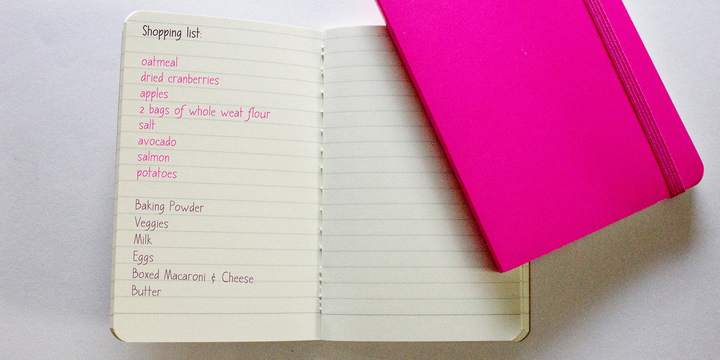 Shopping list:
oatmeal
dried cranberries
apples
2 bags of whole weat flour
salt
avocado
salmon
potatoes
Baking Powder
Veggies
Milk
Eggs
Boxed Macaroni & Cheese
Butter